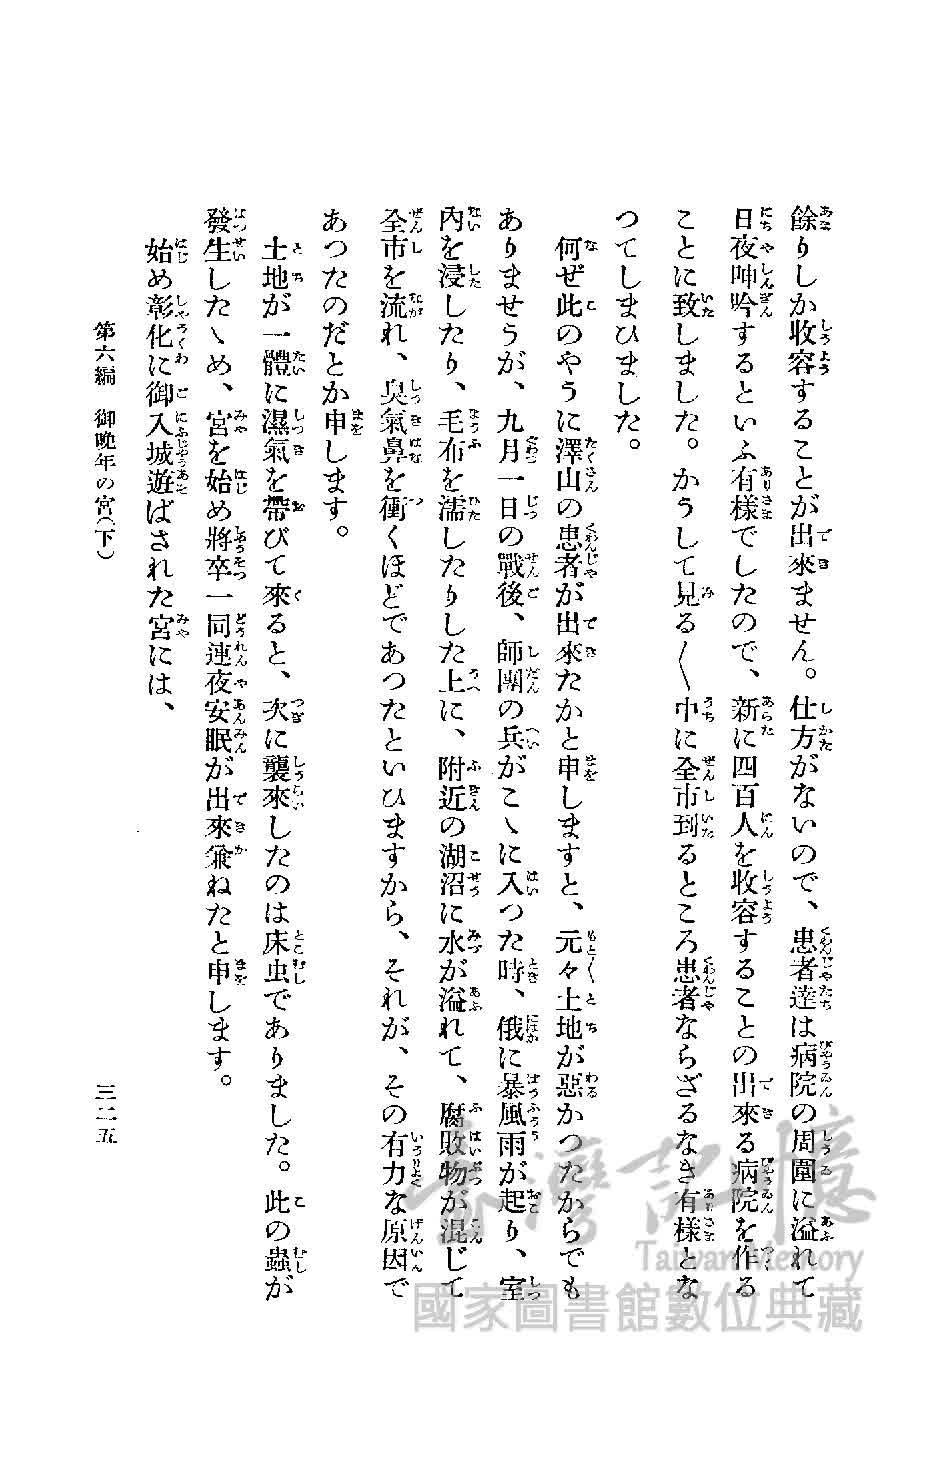 餘りしか收容することが出來ません。仕方がないので、患者達は病院の周圍に溢れて
日夜呻吟するといふ有樣でしたので、新に四百人を收容することの出來る病院を作る
ことに致しました。かうして見る〱中に全市到るところ患者ならざるなき有樣とな
つてしまひました。
何ぜ此のやうに澤山の患者が出來たかと申しますと、元々土地が惡かつたからでも
ありませうが、九月一日の戰後、師團の兵がこゝに入つた時、俄に暴風雨が起り、室
內を浸したり、毛布を濡したりした上に、附近の湖沼に水が溢れて、腐敗物が混じて
全市を流れ、臭氣鼻を衝くほどであつたといひますから、それが、その有力な原因で
あつたのだとか申します。
土地が一體に濕氣を帶びて來ると、次に襲來したのは床虫でありました。此の蟲が
發生したゝめ、宮を始め將卒一同連夜安眠が出來兼ねたと申します。
始め彰化に御入城遊ばされた宮には、
第六編 御晩年の宮（下）
三二五
臺灣記憶
Taiwan Memory
國家圖書館數位典藏